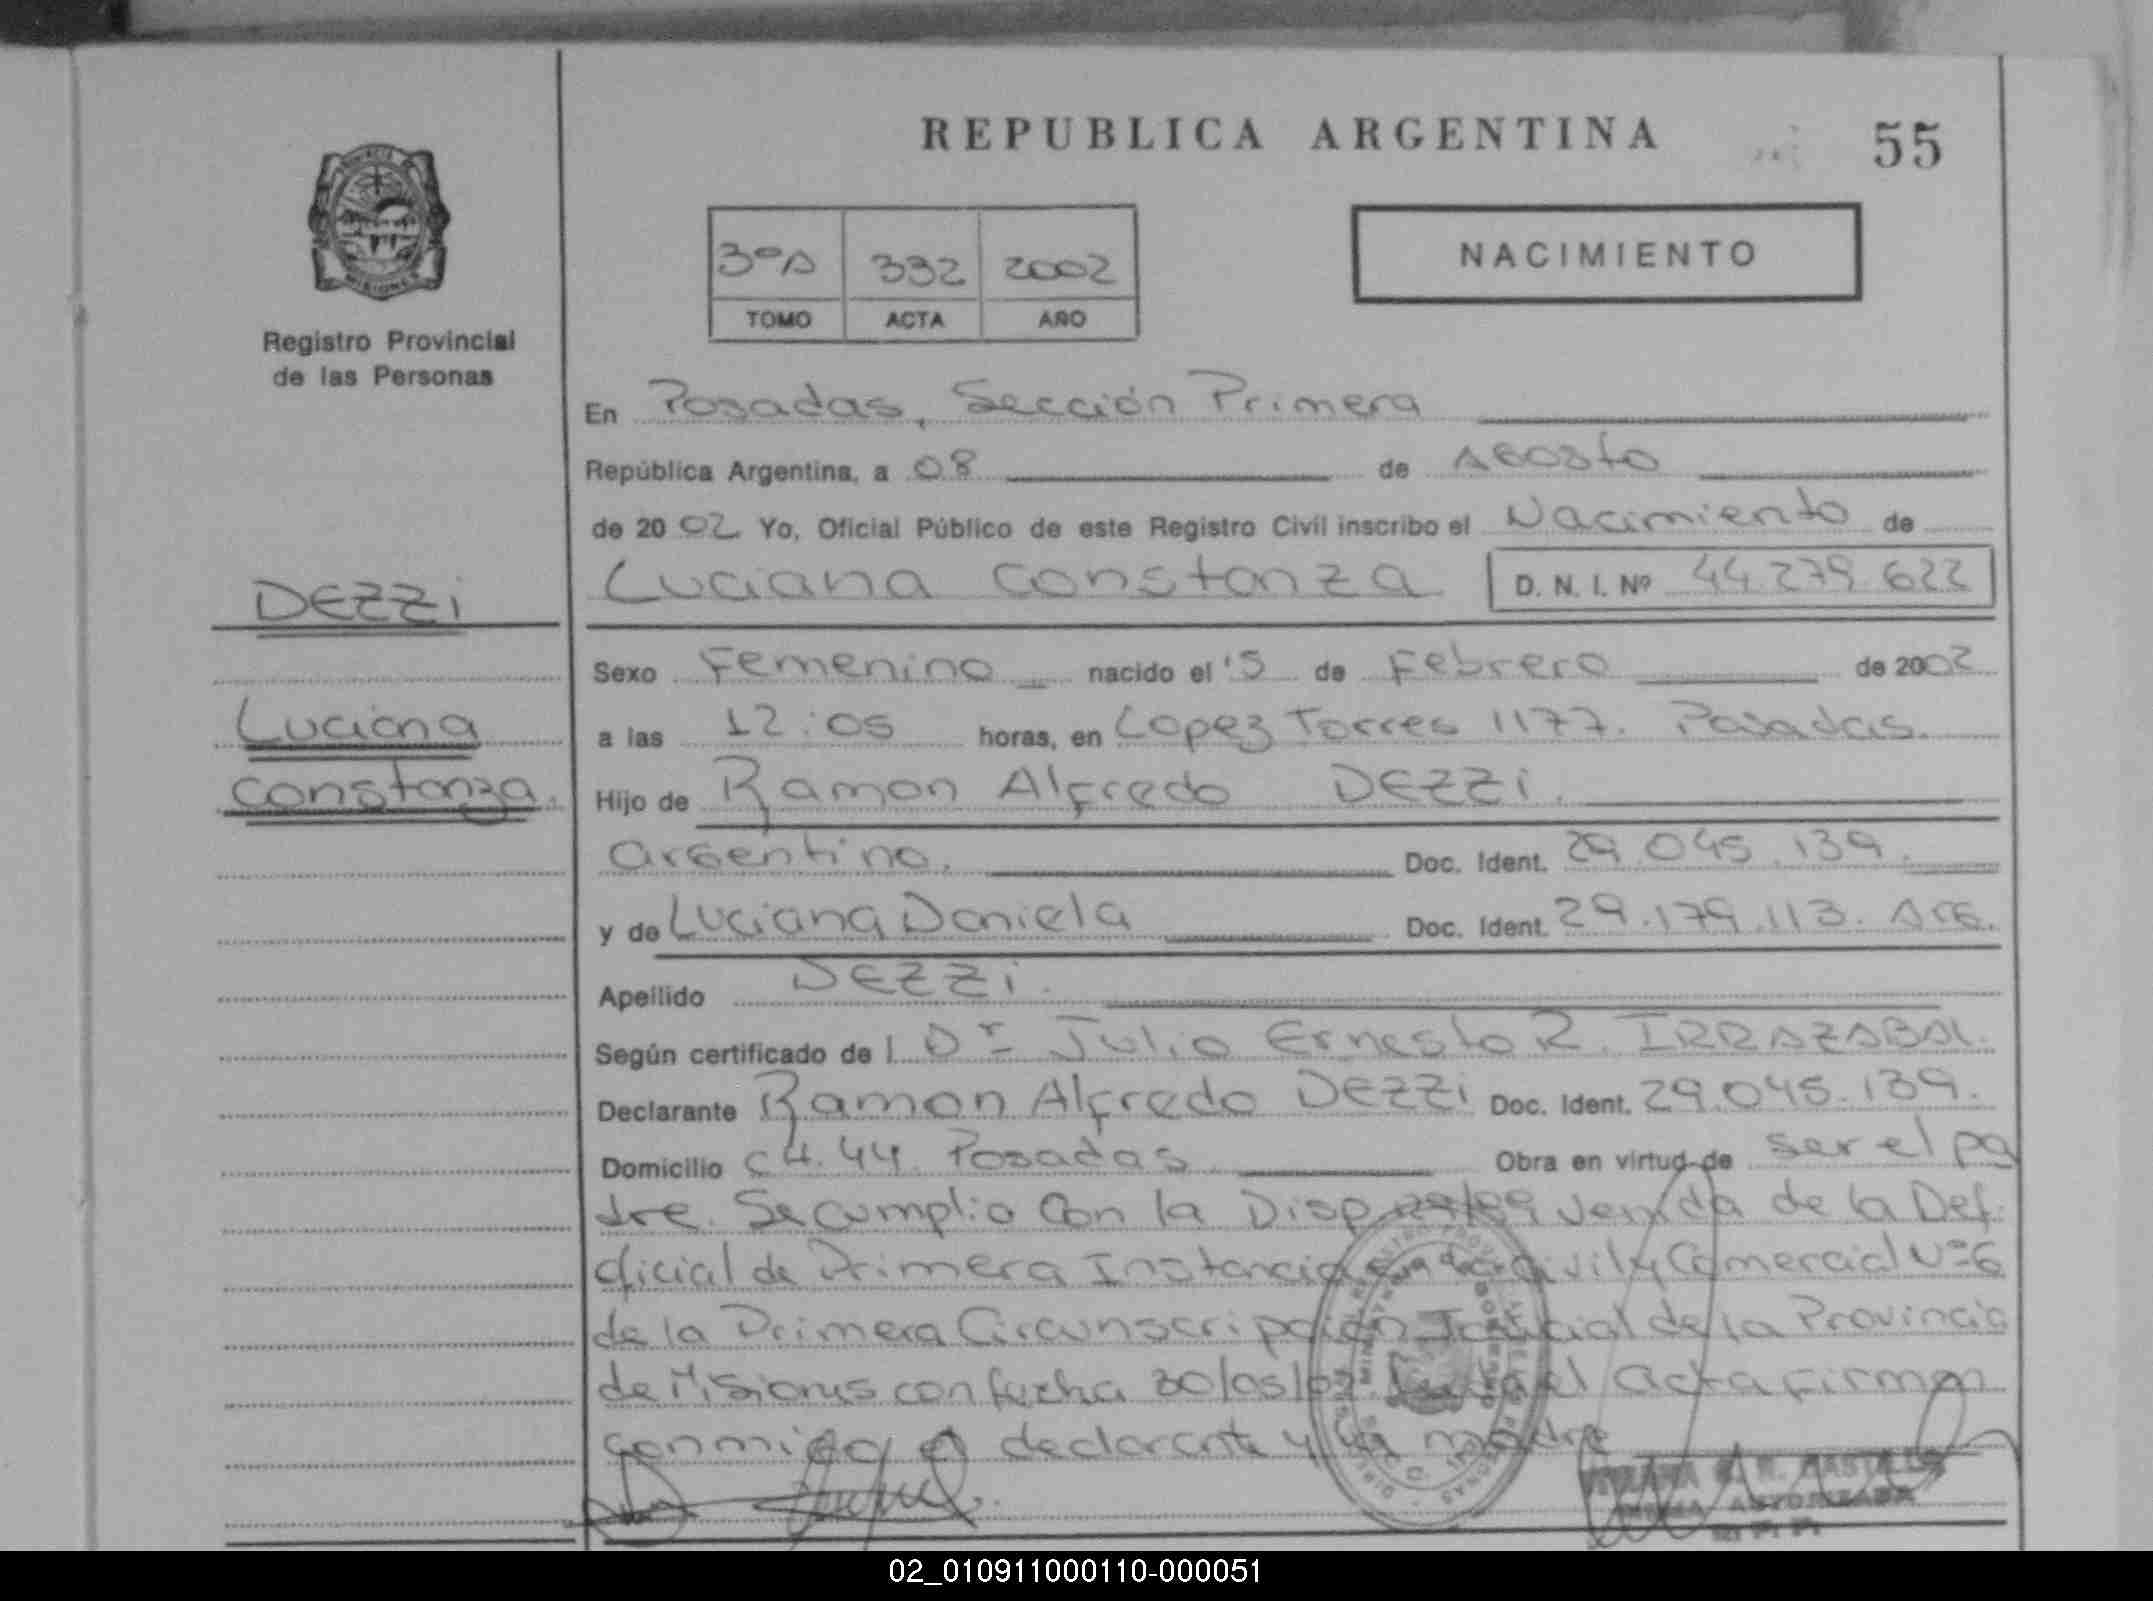 REPUBLICA ARGENTINA
55
PROVINCIA
MISIONES
Registro Provincial
de las Personas
3ºA 332 2002
TOMO ACTA AÑO
NACIMIENTO
En Posadas, Sección Primera
República Argentina, a 08 de Agosto
de 2002 Yo, Oficial Público de este Registro Civil inscribo el Nacimiento de
DEZZi
Luciana Constanza D. N. I. Nº 44.279.622
Sexo Femenino nacido el 15 de Febrero de 2002
Luciana
a las 12:05 horas, en Lopez Torres 1177. Posadas.
Constanza.
Hijo de Ramon Alfredo DEZZi.
Argentino. Doc. Ident. 29.045.139.
y de Luciana Daniela Doc. Ident. 29.179.113. Arg.
Apellido DEZZi.
Según certificado de l Dr Julio Ernesto R. IRRAZABAL.
Declarante Ramon Alfredo DEZZi Doc. Ident. 29.045.139.
Domicilio C 4. 44. Posadas Obra en virtud de ser el pa
dre. Se cumplio Con la Disp. 29/89 venida de la Def.
oficial de Primera Instancia en lo Civil y Comercial Nº6
de la Primera Circunscripción Judicial de la Provincia
de Misiones con fecha 30/05/02 el Acta firman
conmigo el declarante y la madre
02_010911000110-000051